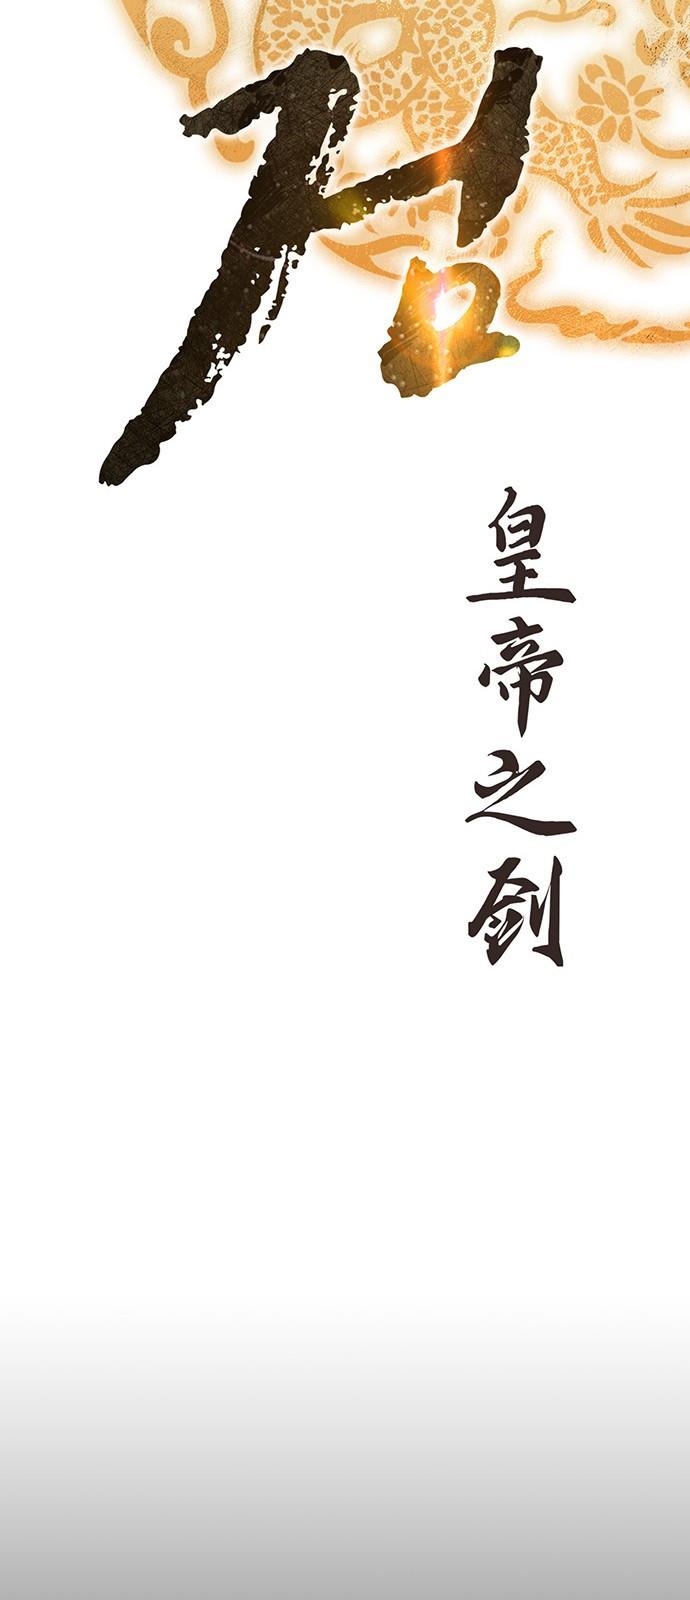 검
皇帝之劍